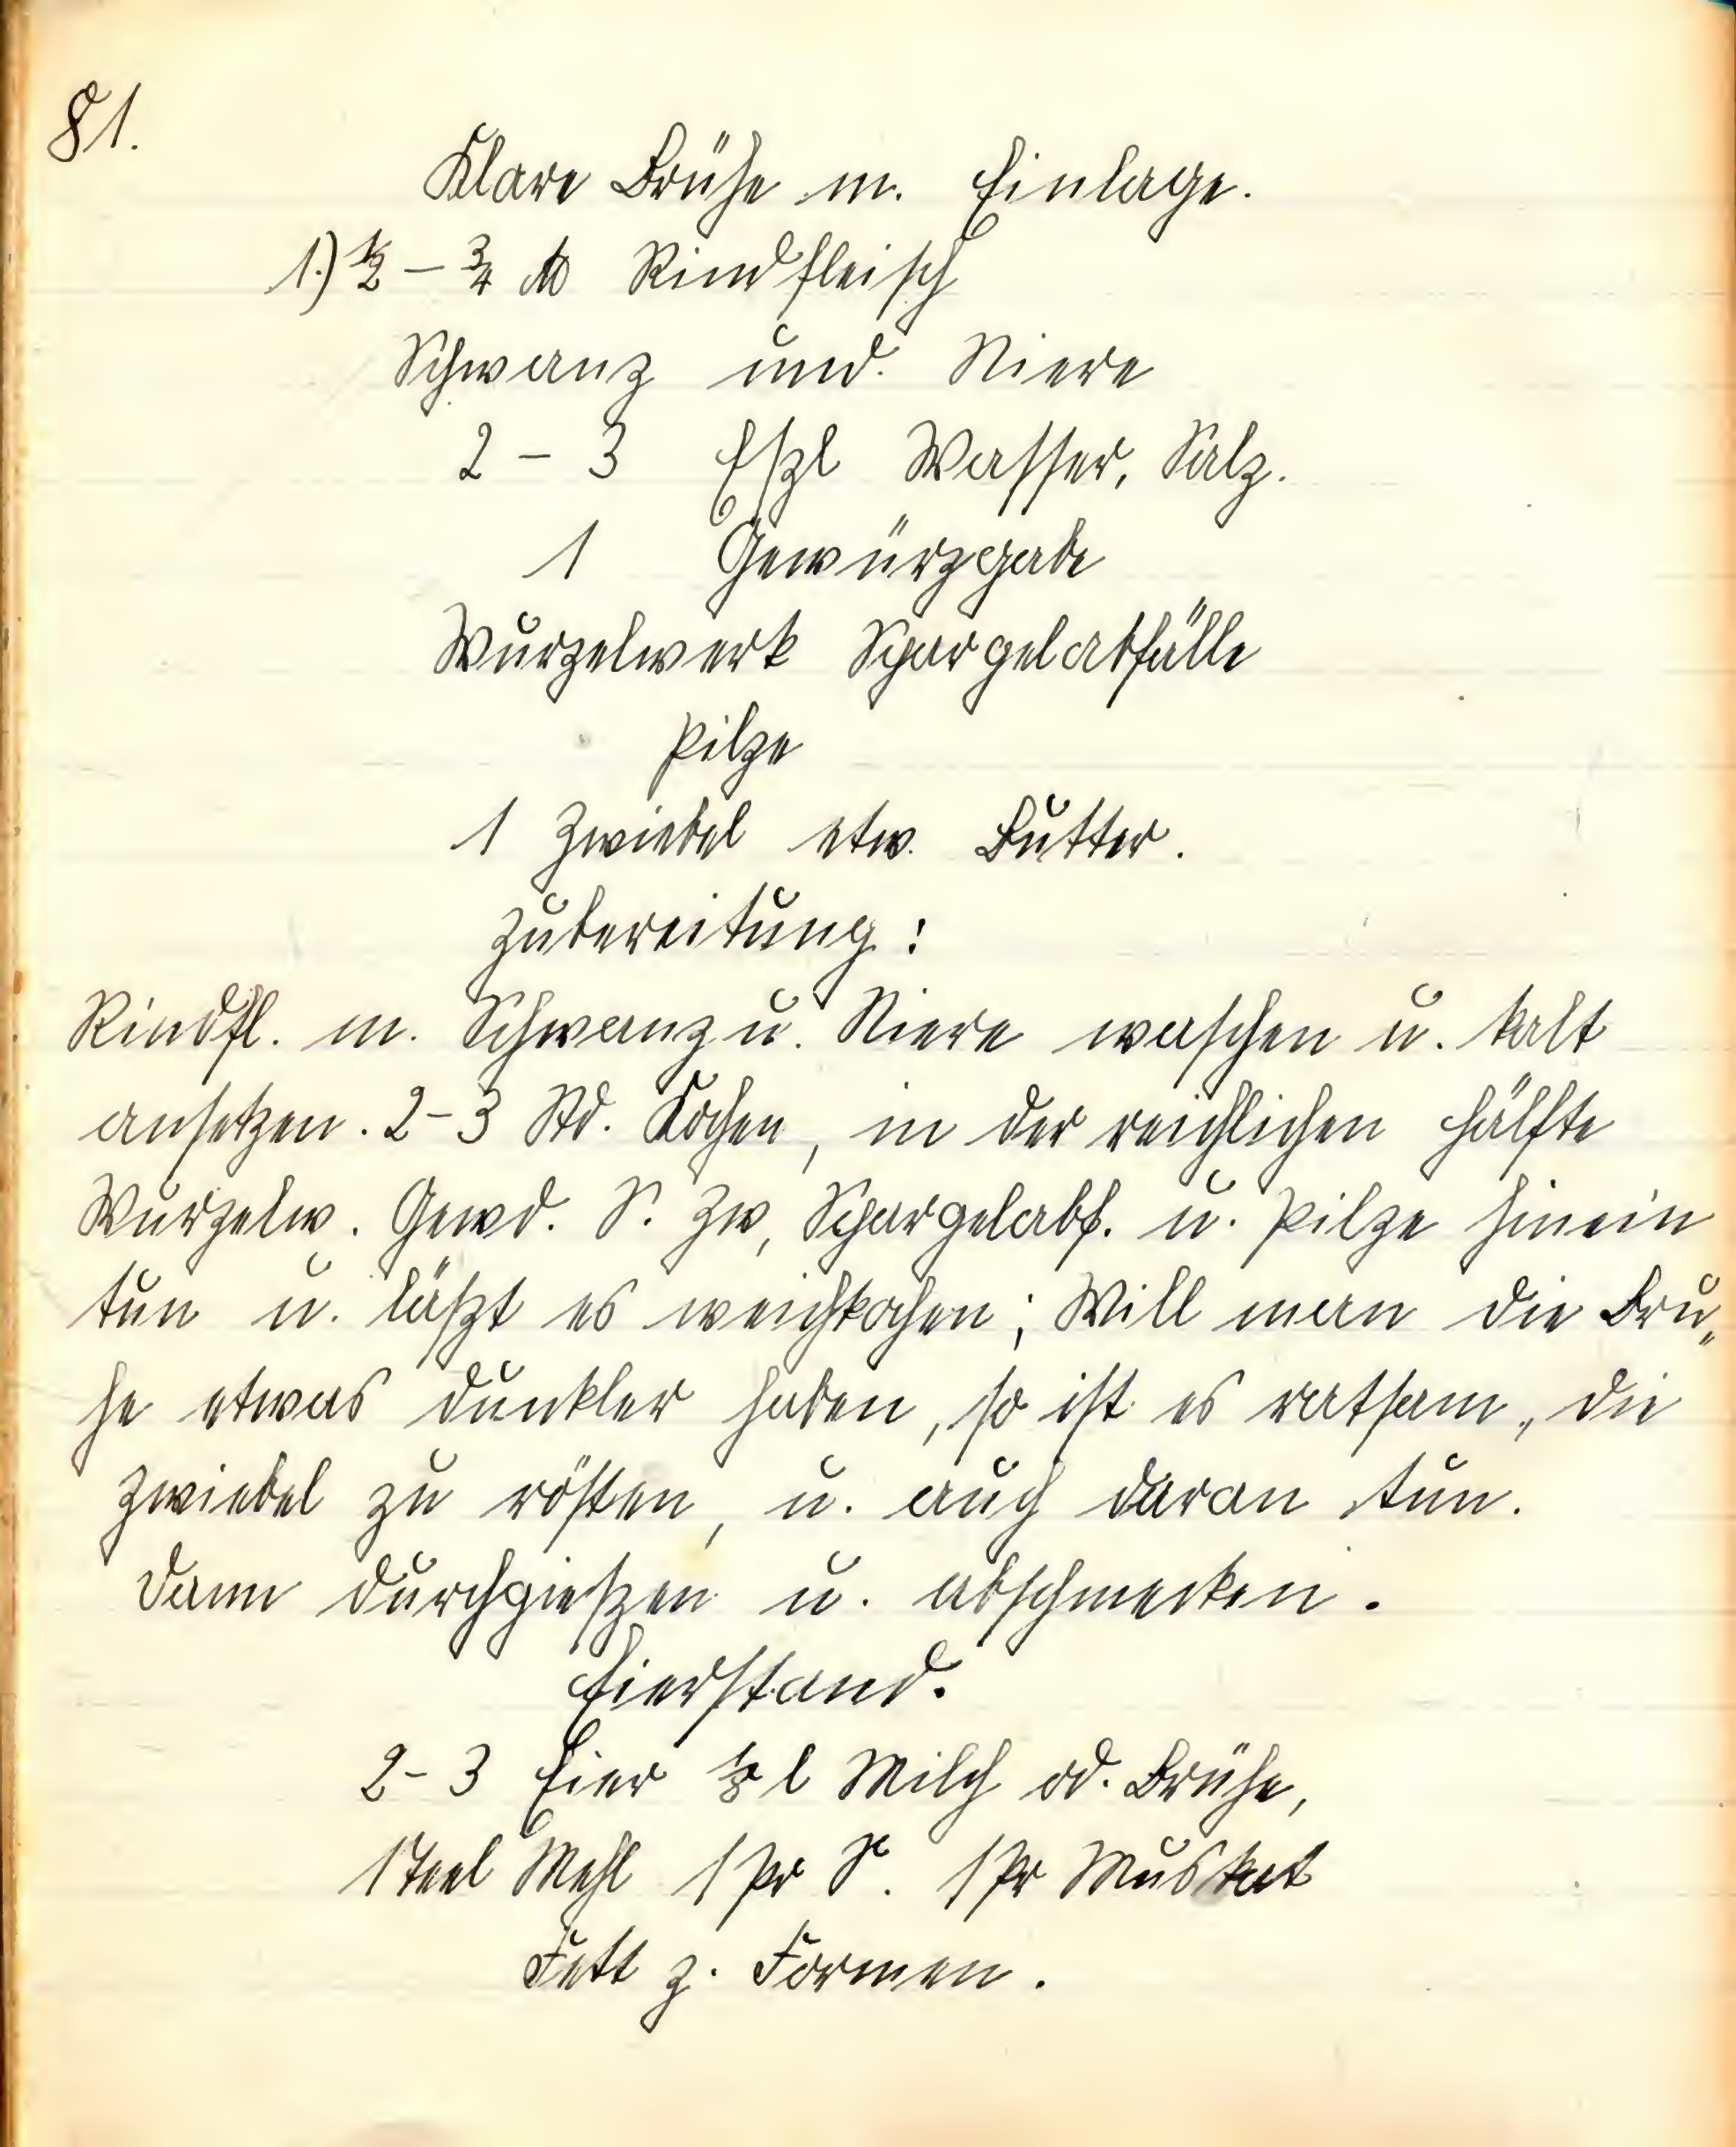 81.
Klare Brühe m. Einlage.
1.) ½ – ¾ ℔ Rindfleisch
Schwanz und Niere
2 – 3 Eßl Wasser, Salz.
1 Gewürzgabe
Wurzelwerk Spargelabfälle
Pilze
1 Zwiebel etw. Butter.
Zubereitung:
Rindfl. m. Schwanz u. Niere waschen u. kalt
ansetzen. 2–3 Std. Kochen, in der reichlichen Hälfte
Wurzelw. Gewd. S. Zw, Spargelabf. u. Pilze hinein
tun u. läßt es weichkochen; Will man die Brü„
he etwas dunkler haben, so ist es ratsam, die
Zwiebel zu rösten, u. auch daran tun.
Dann durchgießen u. abschmecken.
Eierstand.
2–3 Eier ⅛ l Milch od. Brühe,
1 Teel Mehl 1 Pr S. 1 Pr Muskat
Fett z. Formen.